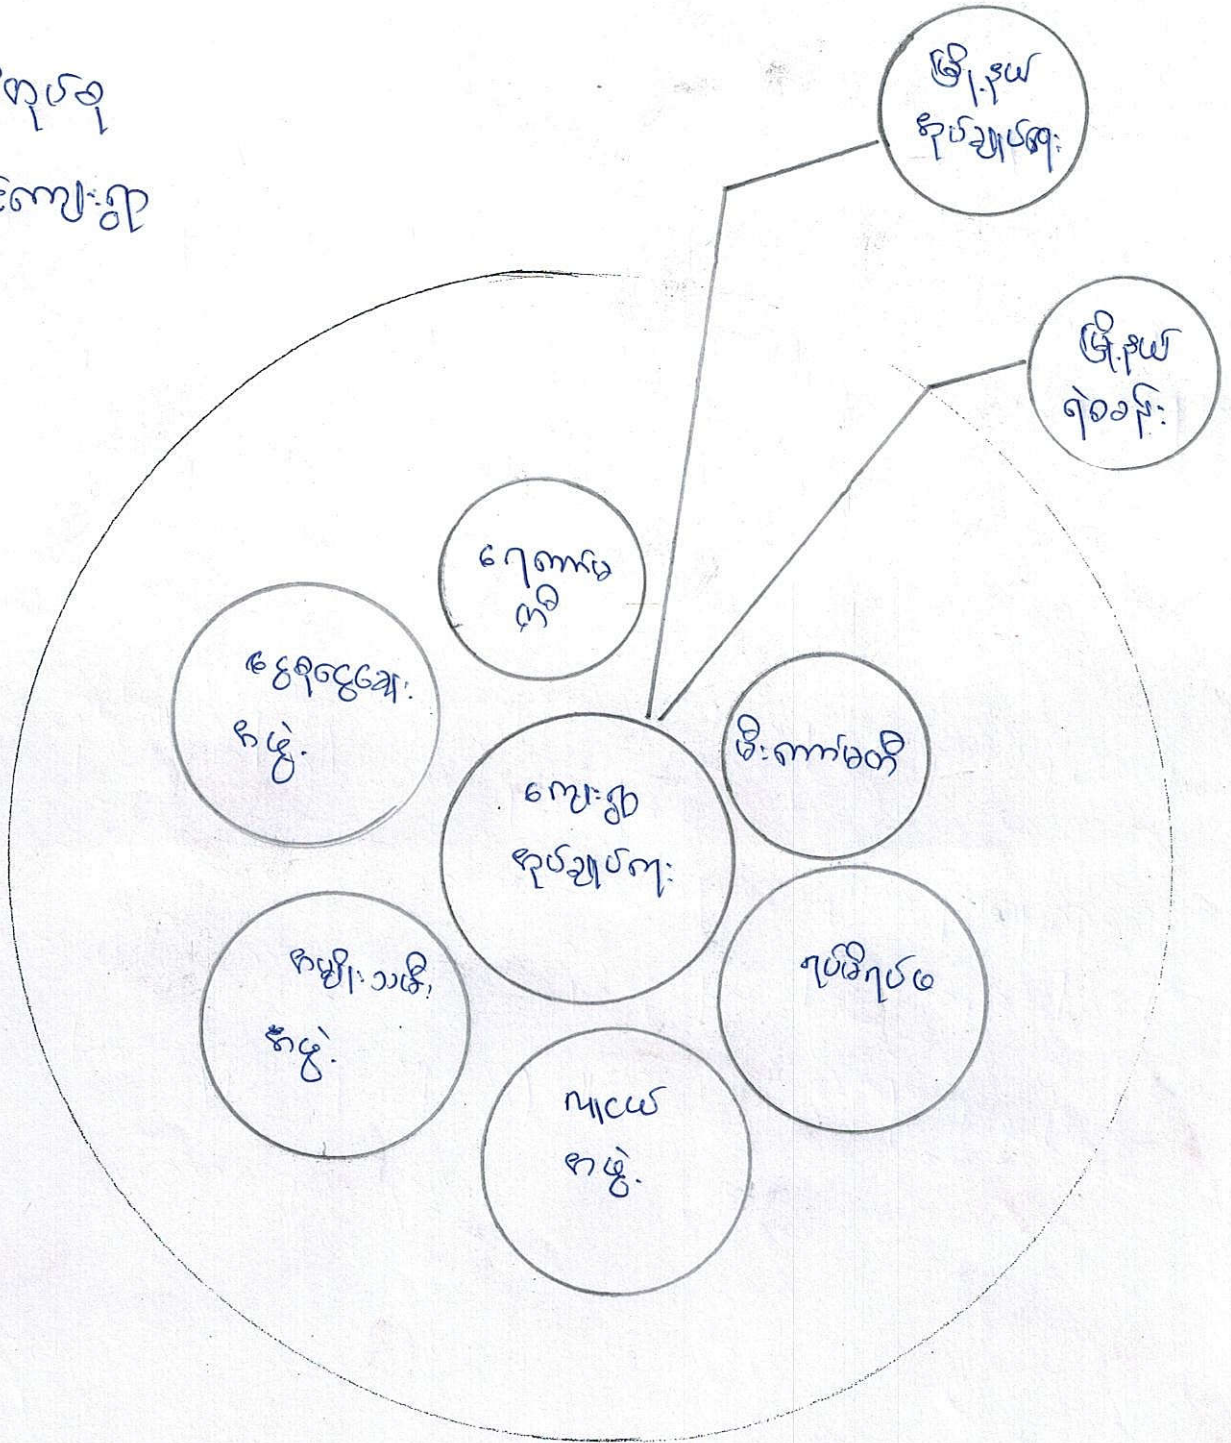 အုပ်စု
ကျေးရွာ
မြို့နယ်
အုပ်ချုပ်ရေး
မြို့နယ်
ရဲစခန်း
ရေကော်မ
တီ
ငွေစုငွေချေး
အဖွဲ့
မီးကော်မတီ
ကျေးရွာ
အုပ်ချုပ်ရေး
အမျိုးသမီး
အဖွဲ့
ရပ်မိရပ်ဖ
လူငယ်
အဖွဲ့